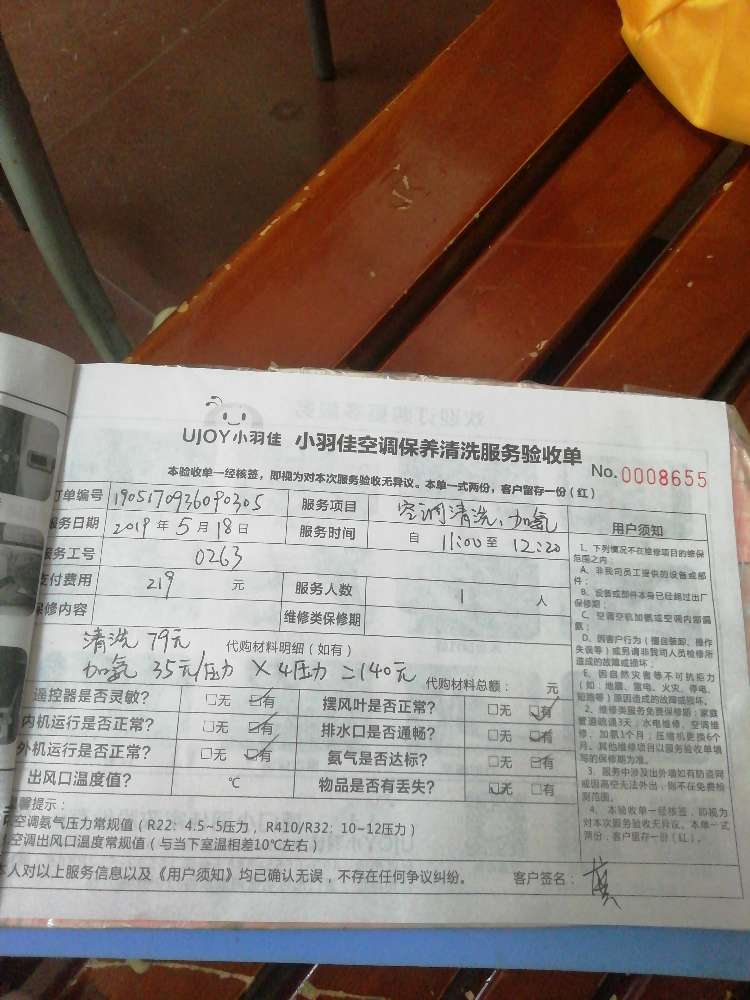 UJOY小羽佳 小羽佳空调保养清洗服务验收单
No.0008655
本验收单一经核签，即视为对本次服务验收无异议。本单一式两份，客户留存一份（红）
订单编号 1905170936090305 服务项目 空调清洗、加氨
服务日期 2019年5月18日 服务时间 自 11:00 至 12:20
服务工号 0263
支付费用 219 元 服务人数 1 人
保修内容 维修类保修期
清洗 79元 代购材料明细（如有）
加氨 35元/压力 × 4压力 =140元 代购材料总额： 元
遥控器是否灵敏？ □无 ☑有 摆风叶是否正常？ □无 ☑有
内机运行是否正常？ □无 ☑有 排水口是否通畅？ □无 ☑有
外机运行是否正常？ □无 ☑有 氨气是否达标？ □无 ☑有
出风口温度值？ ℃ 物品是否有丢失？ ☑无 □有
馨提示：
空调氨气压力常规值（R22：4.5~5压力，R410/R32：10~12压力）
空调出风口温度常规值（与当下室温相差10℃左右）
本人对以上服务信息以及《用户须知》均已确认无误，不存在任何争议纠纷。 客户签名：
用户须知
1、下列情况不在维修项目的维保
范围之内：
A、非我司员工提供的设备或部
件；
B、设备或部件本身已经超过出厂
保修期；
C、空调空机加氨或空调内部漏
氨；
D、因客户行为（擅自装卸、操作
失误等）或另请非我司人员检修所
造成的故障或损坏；
E、因自然灾害等不可抗拒力
（如：地震、雷电、火灾、停电、
短路等）原因造成的故障或损坏。
2、维修类服务免费保修期：家庭
管道疏通3天，水电维修、空调维
修、加氨1个月；压缩机更换6个
月。其他维修项目以服务验收单填
写的保修期为准。
3、服务中涉及出外墙如有防盗网
或因高空无法外出，则不在免费检
测范围。
4、本验收单一经核签，即视为
对本次服务验收无异议。本单一式
两份，客户留存一份（红）。